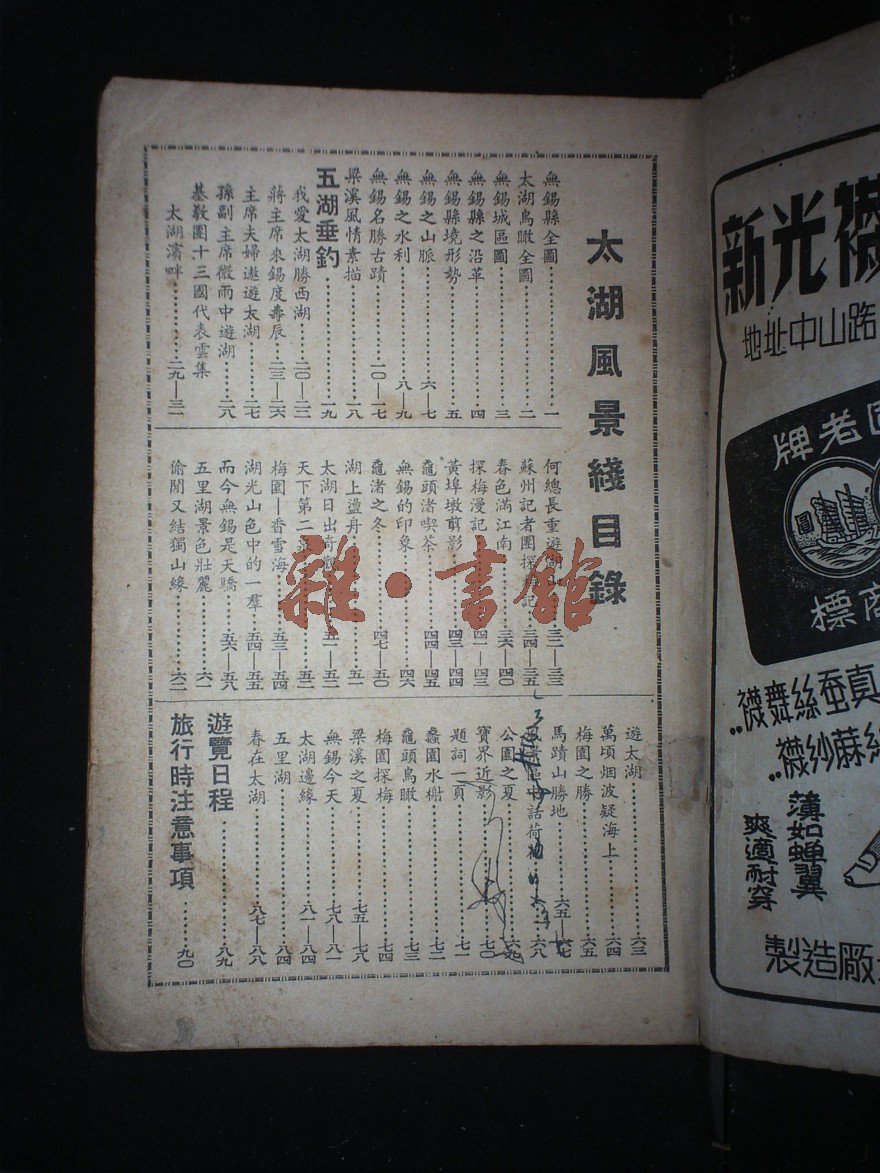 太湖風景綫目錄
無錫縣全圖……一
太湖鳥瞰全圖……二
無錫城區圖……三
無錫縣之沿革……四
無錫縣境形勢……五
無錫之山脈……六—七
無錫之水利……八—九
無錫名勝古蹟……一〇—一七
梁溪風情素描……一八
五湖垂釣……一九
我愛太湖勝西湖……二〇—二二
蔣主席來錫度壽辰……二三—二六
主席夫婦遨遊太湖……二七
孫副主席微雨中遊湖……二八
基教團十三國代表雲集
太湖濱畔……二九—三一
何總長重遊湖山……三二—三三
蘇州記者團探梅記……三四—三五
春色滿江南……三六—四〇
探梅漫記……四一—四三
黃埠墩剪影……四三—四四
黿頭渚喫茶……四四—四五
無錫的印象……四六
黿渚之冬……四七—五〇
湖上盪舟……五一
太湖日出奇觀……五一—五二
天下第二泉……五二
梅園—香雪海……五三—五四
湖光山色中的一羣……五四—五五
而今無錫是天驕……五六—五八
五里湖景色壯麗……六一
偷閒又結獨山緣……六二
遊太湖……六三
萬頃烟波疑海上……六四
梅園之勝……六五
馬蹟山勝地……六五—六七
風景區中話荷花……六八
公園之夏……六九
寶界近影……七〇
題詞一頁……七一
蠡園水榭……七二
黿頭鳥瞰……七三
梅園探梅……七四
梁溪之夏……七五—七八
無錫今天……七八—八一
太湖邊緣……八一—八四
五里湖……八四
春在太湖……八七—八八
遊覽日程……八九
旅行時注意事項……九〇
雜·書館
新光襪
地址中山路
牌老
圓
商標
真蚕絲舞襪
絲麻紗襪
薄如蝉翼
爽適耐穿
製造廠